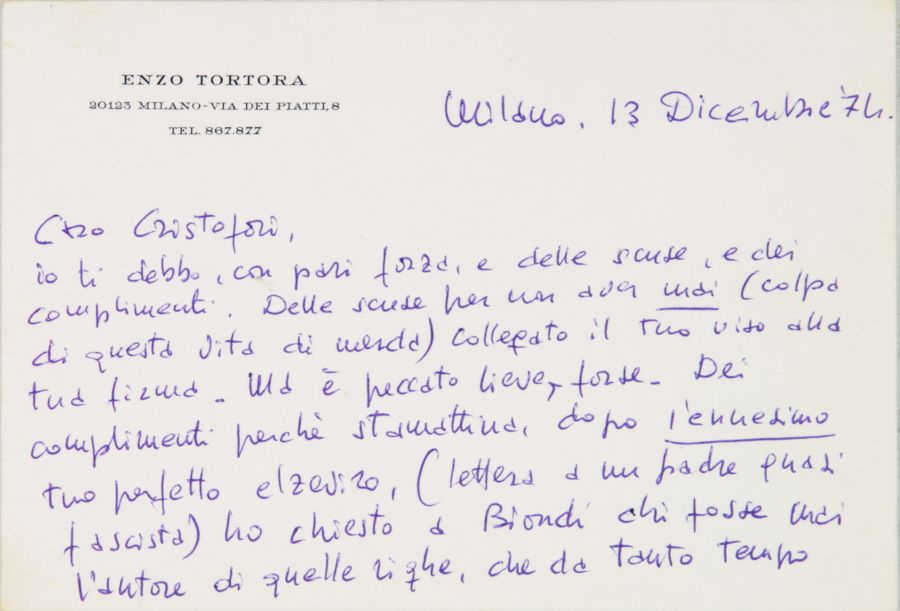 ENZO TORTORA
20123 MILANO-VIA DEI PIATTI, 8
TEL. 867.877
Milano, 13 Dicembre '74.
Caro Cristofori,
io ti debbo, con pari forza, e delle scuse, e dei
complimenti. Delle scuse per non aver mai (colpa
di questa vita di merda) collegato il tuo viso alla
tua firma. Ma è peccato lieve, forse. Dei
complimenti perchè stamattina, dopo l'ennesimo
tuo perfetto elzeviro, (lettera a un padre quasi
fascista) ho chiesto a Biondi chi fosse mai
l'autore di quelle righe, che da tanto tempo